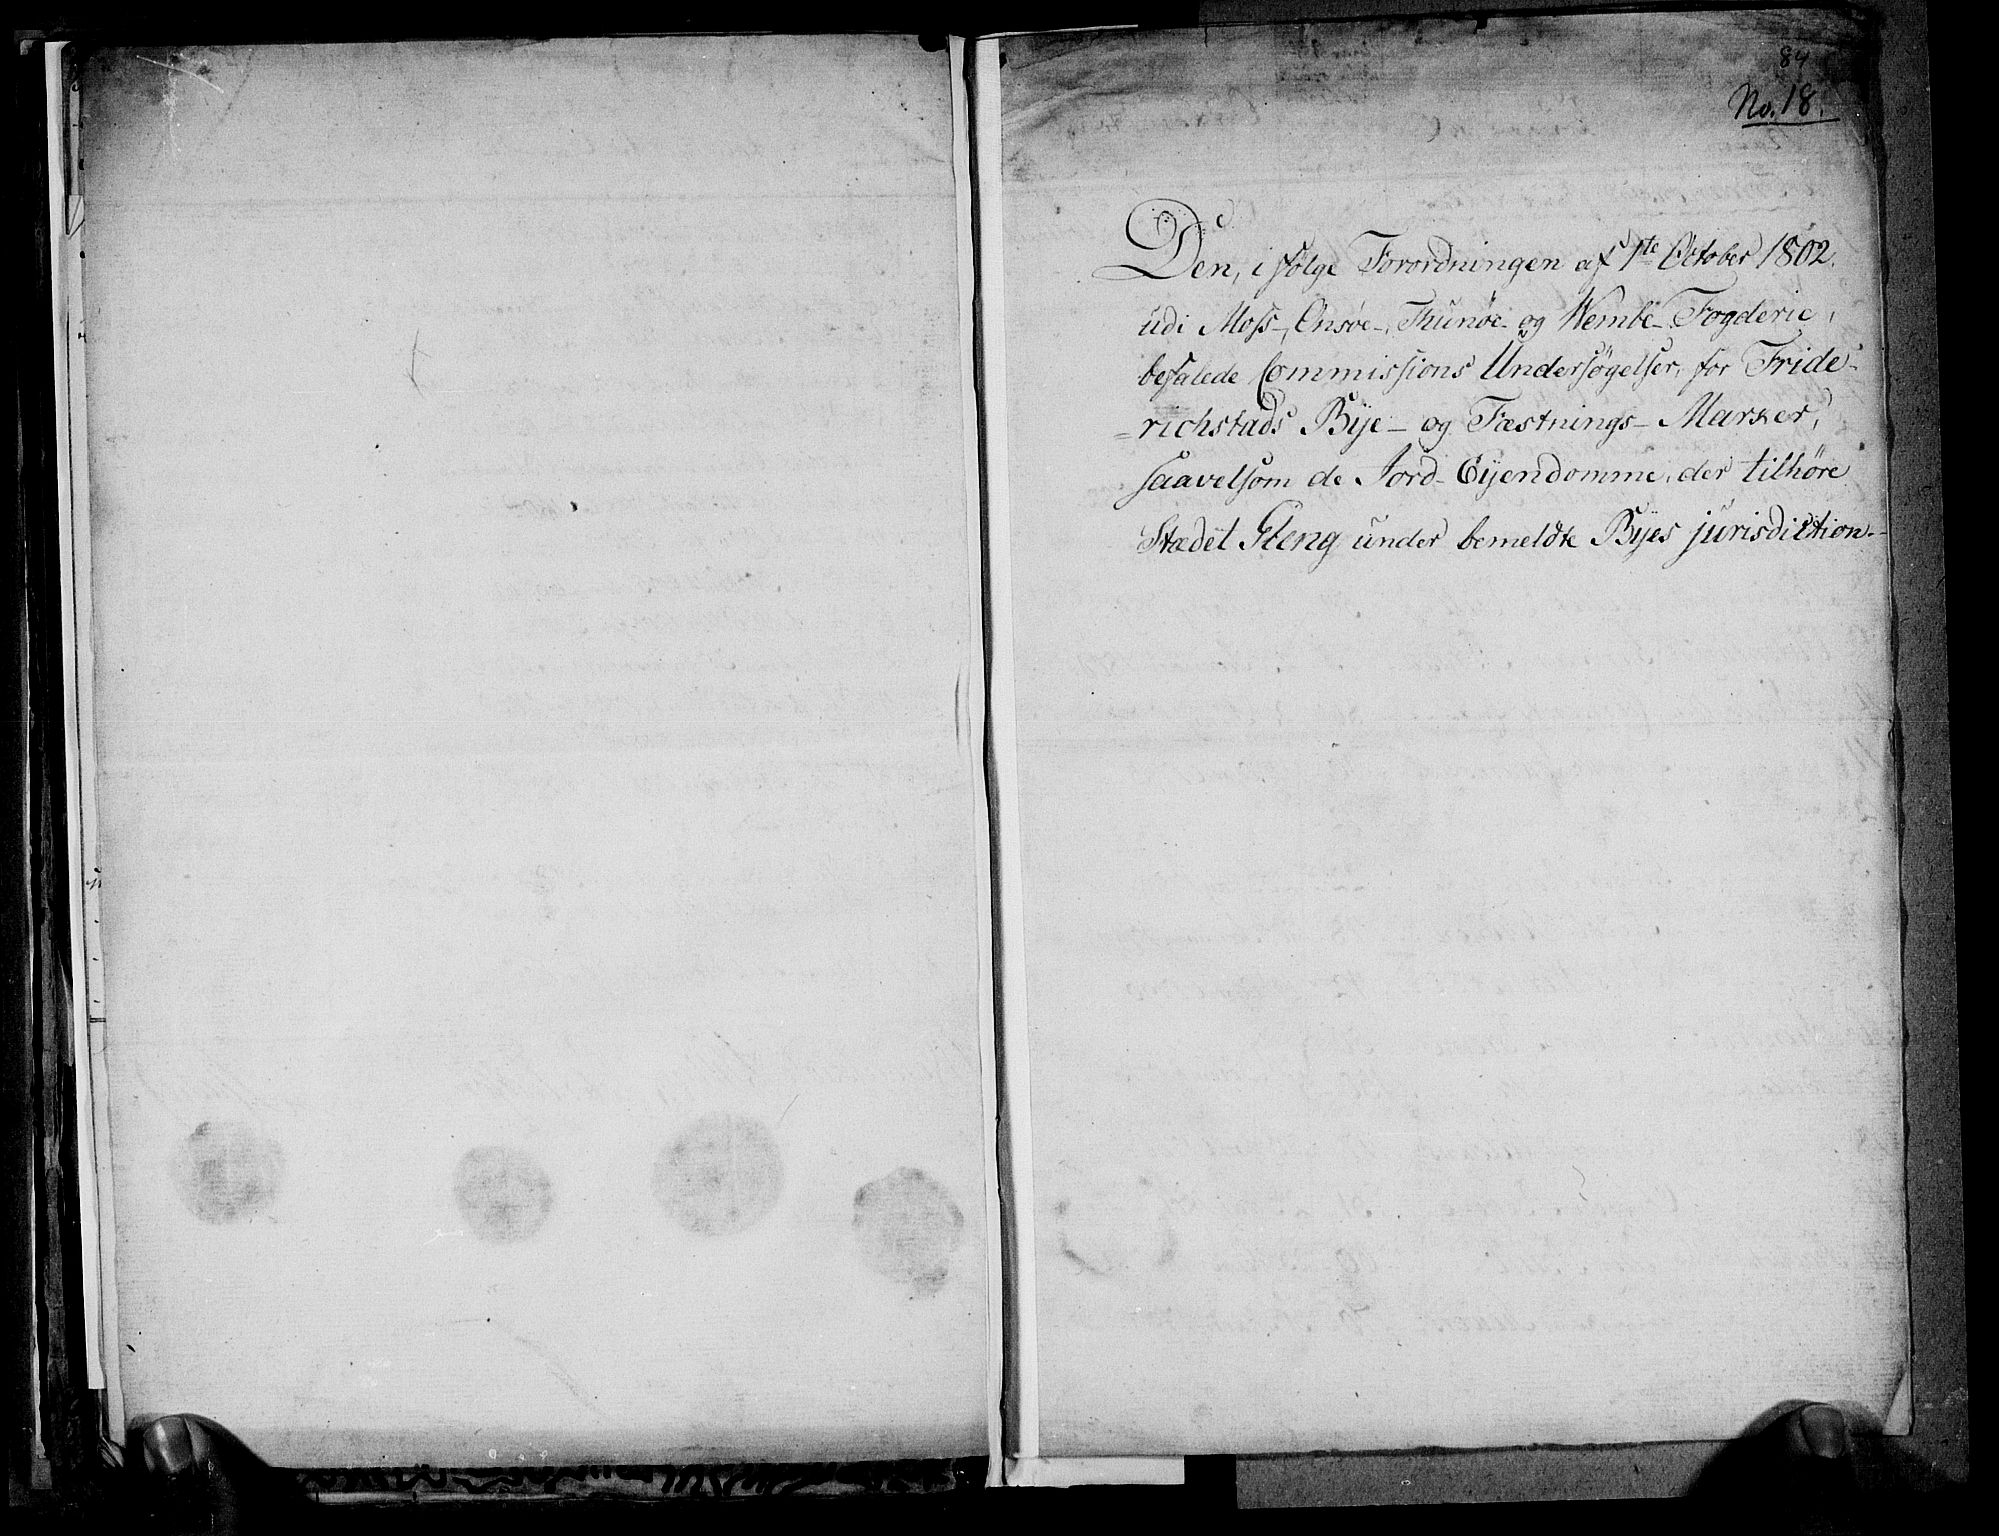 84
No. 18.
Den, ifølge Forordningen af 1te October 1802.
udi Moss-, Onsøe-, Thunøe- og Wembe-Fogderie,
befalede Commissions Undersøgelser, for Fride-
=richstads Bÿe- og Fæstnings-Marker,
saavelsom de Jord-Eÿendomme, der tilhøre
Stædet Gleng under bemeldte Bÿes jurisdiction.-